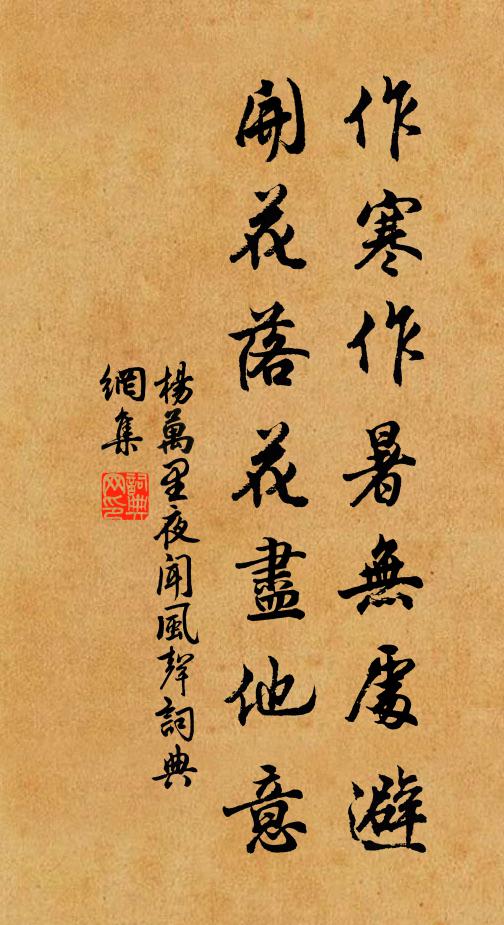 作寒作暑無處避
開花落花盡他意
楊萬里夜聞風聲詞典
網集
詞典
网印